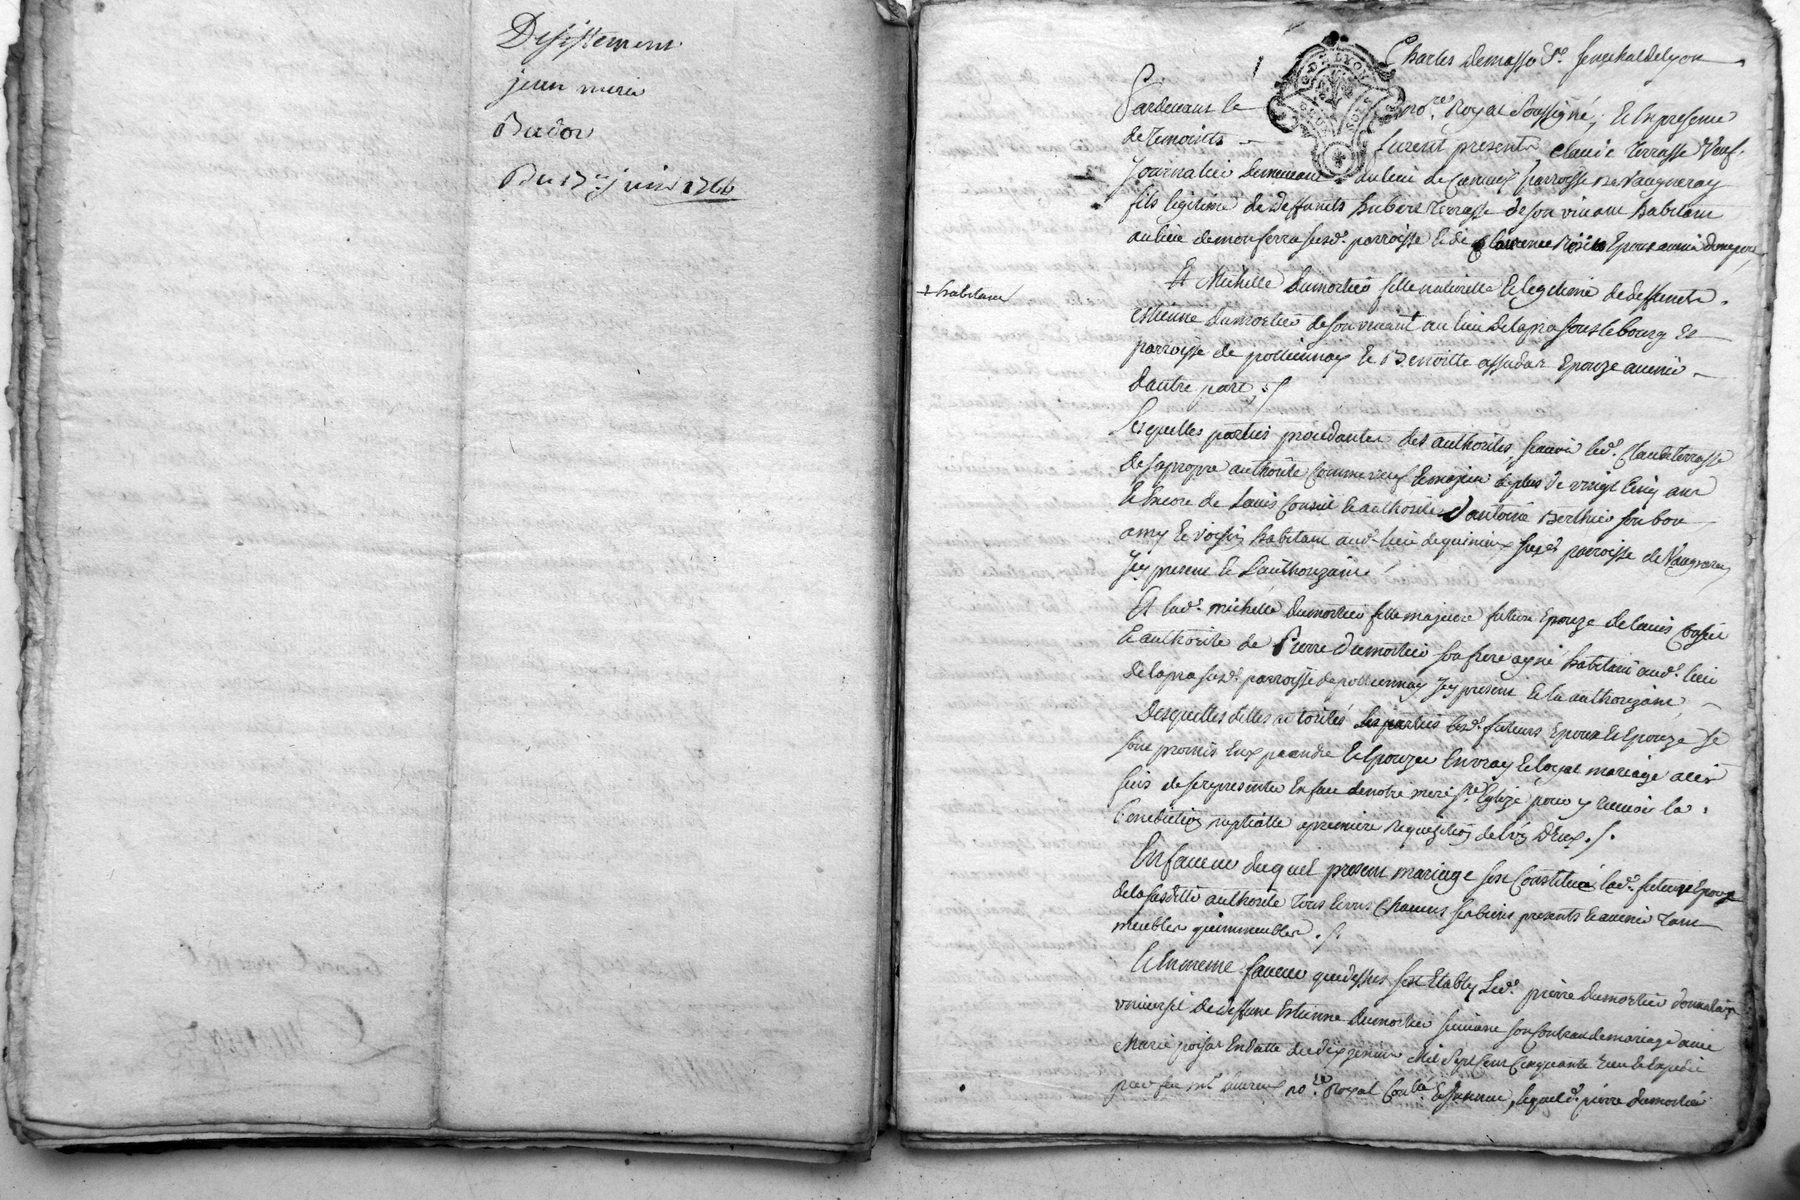 Desistement
jean marie
Bador
Du 17e juin 1766
Charles Demasso Sr. senechal de lyon
Pardevant le no.re Royal soussigné, et en presence
de temoins furent presents claude terrasse veuf,
journalier demeurant au lieu de parroisse de Vaugneray
fils legitime de deffunts hubert terrasse de son vivant habitant
au lieu de monferra susd. parroisse et de epoux avenir d'une part,
Et Michelle Dumortier fille naturelle et legitime de deffunct
+ habitant
estienne dumortier de son vivant + au lieu de lapra sous le bourg et
parroisse de pollionnay et Benoitte assada epouze avenir
d'autre part ./.
Lesquelles parties procedantes des authorités, scavoir led. Claude terrasse
de sa propre authorité comme veuf et majeur de plus de vingt cinq ans
et encore de l'avis conseil et authorité d'antoine Berthier son bon
amy et voisin habitant aud. lieu de quinieux susd. parroisse de Vaugneray
icy present et l'authorizant.
Et lad. michelle dumortier fille majeure future epouze de l'avis conseil
et authorité de Pierre dumortier son frere ayné habitant aud. lieu
de lapra susd. parroisse de pollionnay icy present et la authorizant,
Desquelles dittes autorités les parties lesd. futurs epoux et epouze se
sont promis eux prendre et epouzer en vray et loyal mariage a ces
fins de se representer en face de notre mere ste. Eglize pour y recevoir la
benediction nuptialle a premiere requisition de l'un d'eux ./.
En faveur duquel present mariage s'est constituée lad. future epouze
de la susditte authorité tous et uns chacuns ses biens presents et avenir tant
meubles qu'immeubles ./.
Et en meme faveur que dessus s'est etably led. pierre dumortier donnataire
universel de deffunt estienne dumortier suivant son contrat de mariage avec
Marie poisat en datte du dix janvier mil sept cent cinquante
par feu me. no.re Royal lequel d. pierre dumortier